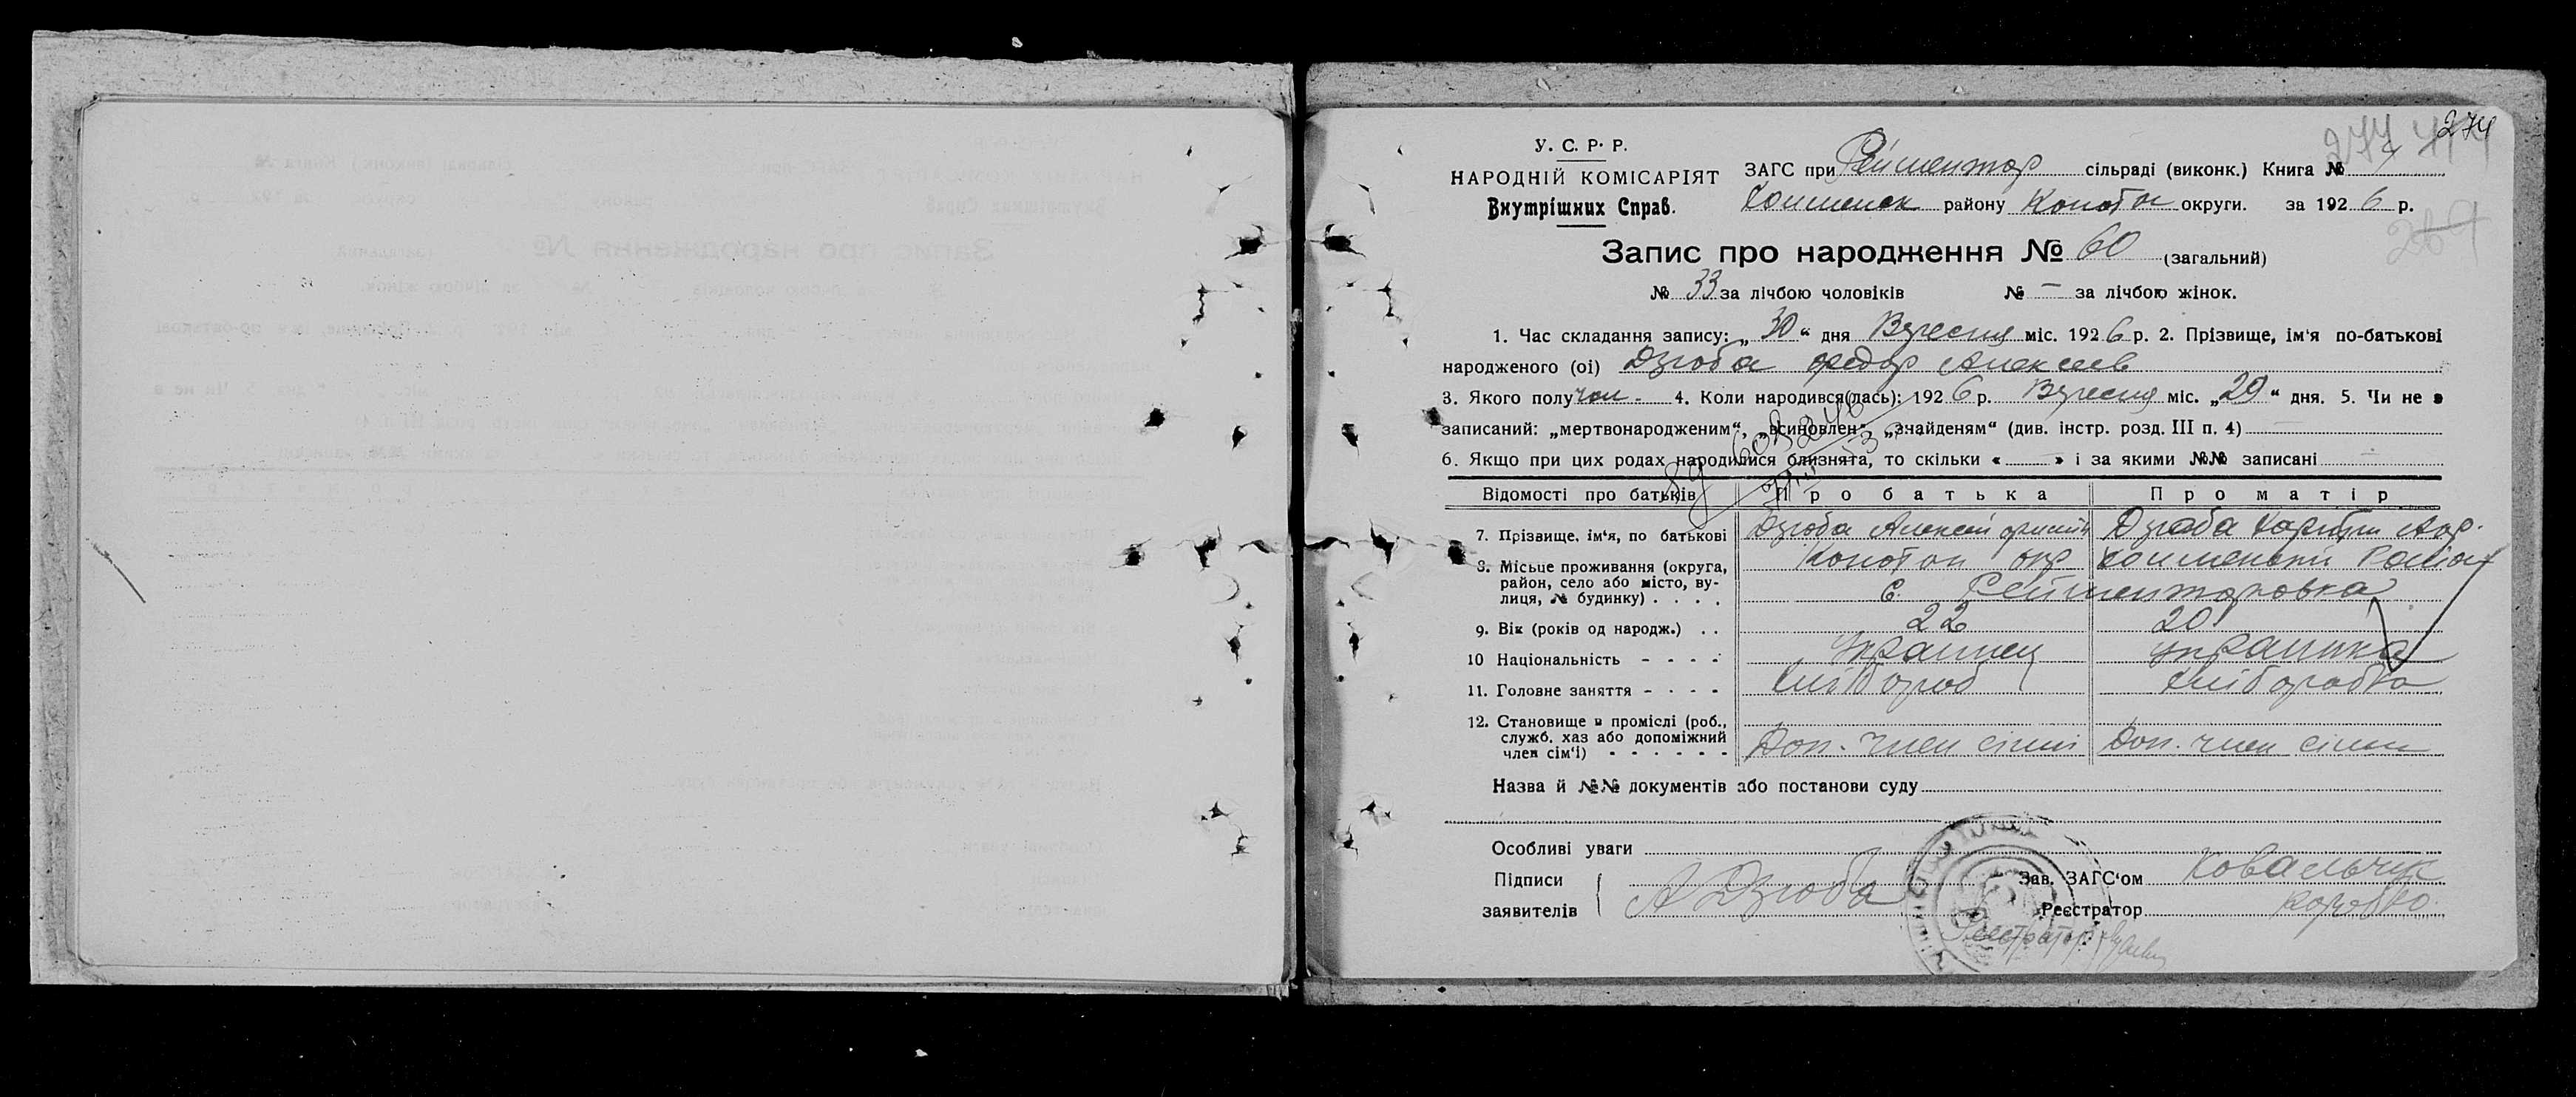 274
У. С. Р. Р.
НАРОДНІЙ КОМІСАРІЯТ
Внутрішних Справ.
ЗАГС при Рейментар сільраді (виконк.) Книга №
району Конотоп округи. за 1926 р.
Запис про народження № 60 (загальний)
№ 33 за лічбою чоловіків № — за лічбою жінок.
1. Час складання запису: „30“ дня Вересня міс. 1926 р. 2. Прізвище, ім‘я по-батькові
народженого (ої) Дзюба Федор Алексеев
3. Якого полу чол. 4. Коли народився(лась): 1926 р. Вересня міс. „29“ дня. 5. Чи не в
записаний: „мертвонародженим“, „всиновлен“, „знайденям“ (див. інстр. розд. III п. 4)
6. Якщо при цих родах народилися близнята, то скільки « » і за якими №№ записані
Відомості про батьків Про батька Про матір
7. Прізвище, ім‘я, по батькові Дзюба Алексей Дзюба
8. Місьце проживання (округа, район, село або місто, вулиця, № будинку) . . . . Конотоп окр
с. Рейментаровка
9. Вік (років од народж.) . . 22 20
10 Національність - - - - Украинец украинка
11. Головне заняття - - - - хлібороб хліборобка
12. Становище в проміслі (роб.,
служб. хаз або допоміжний
член сім‘ї) - - - - - - Доп. член сімї Доп. член сімї
Назва й №№ документів або постанови суду
Особливі уваги
Підписи
заявителів А Дзюба
Зав. ЗАГС‘ом Ковальчук
Реєстратор Коробко